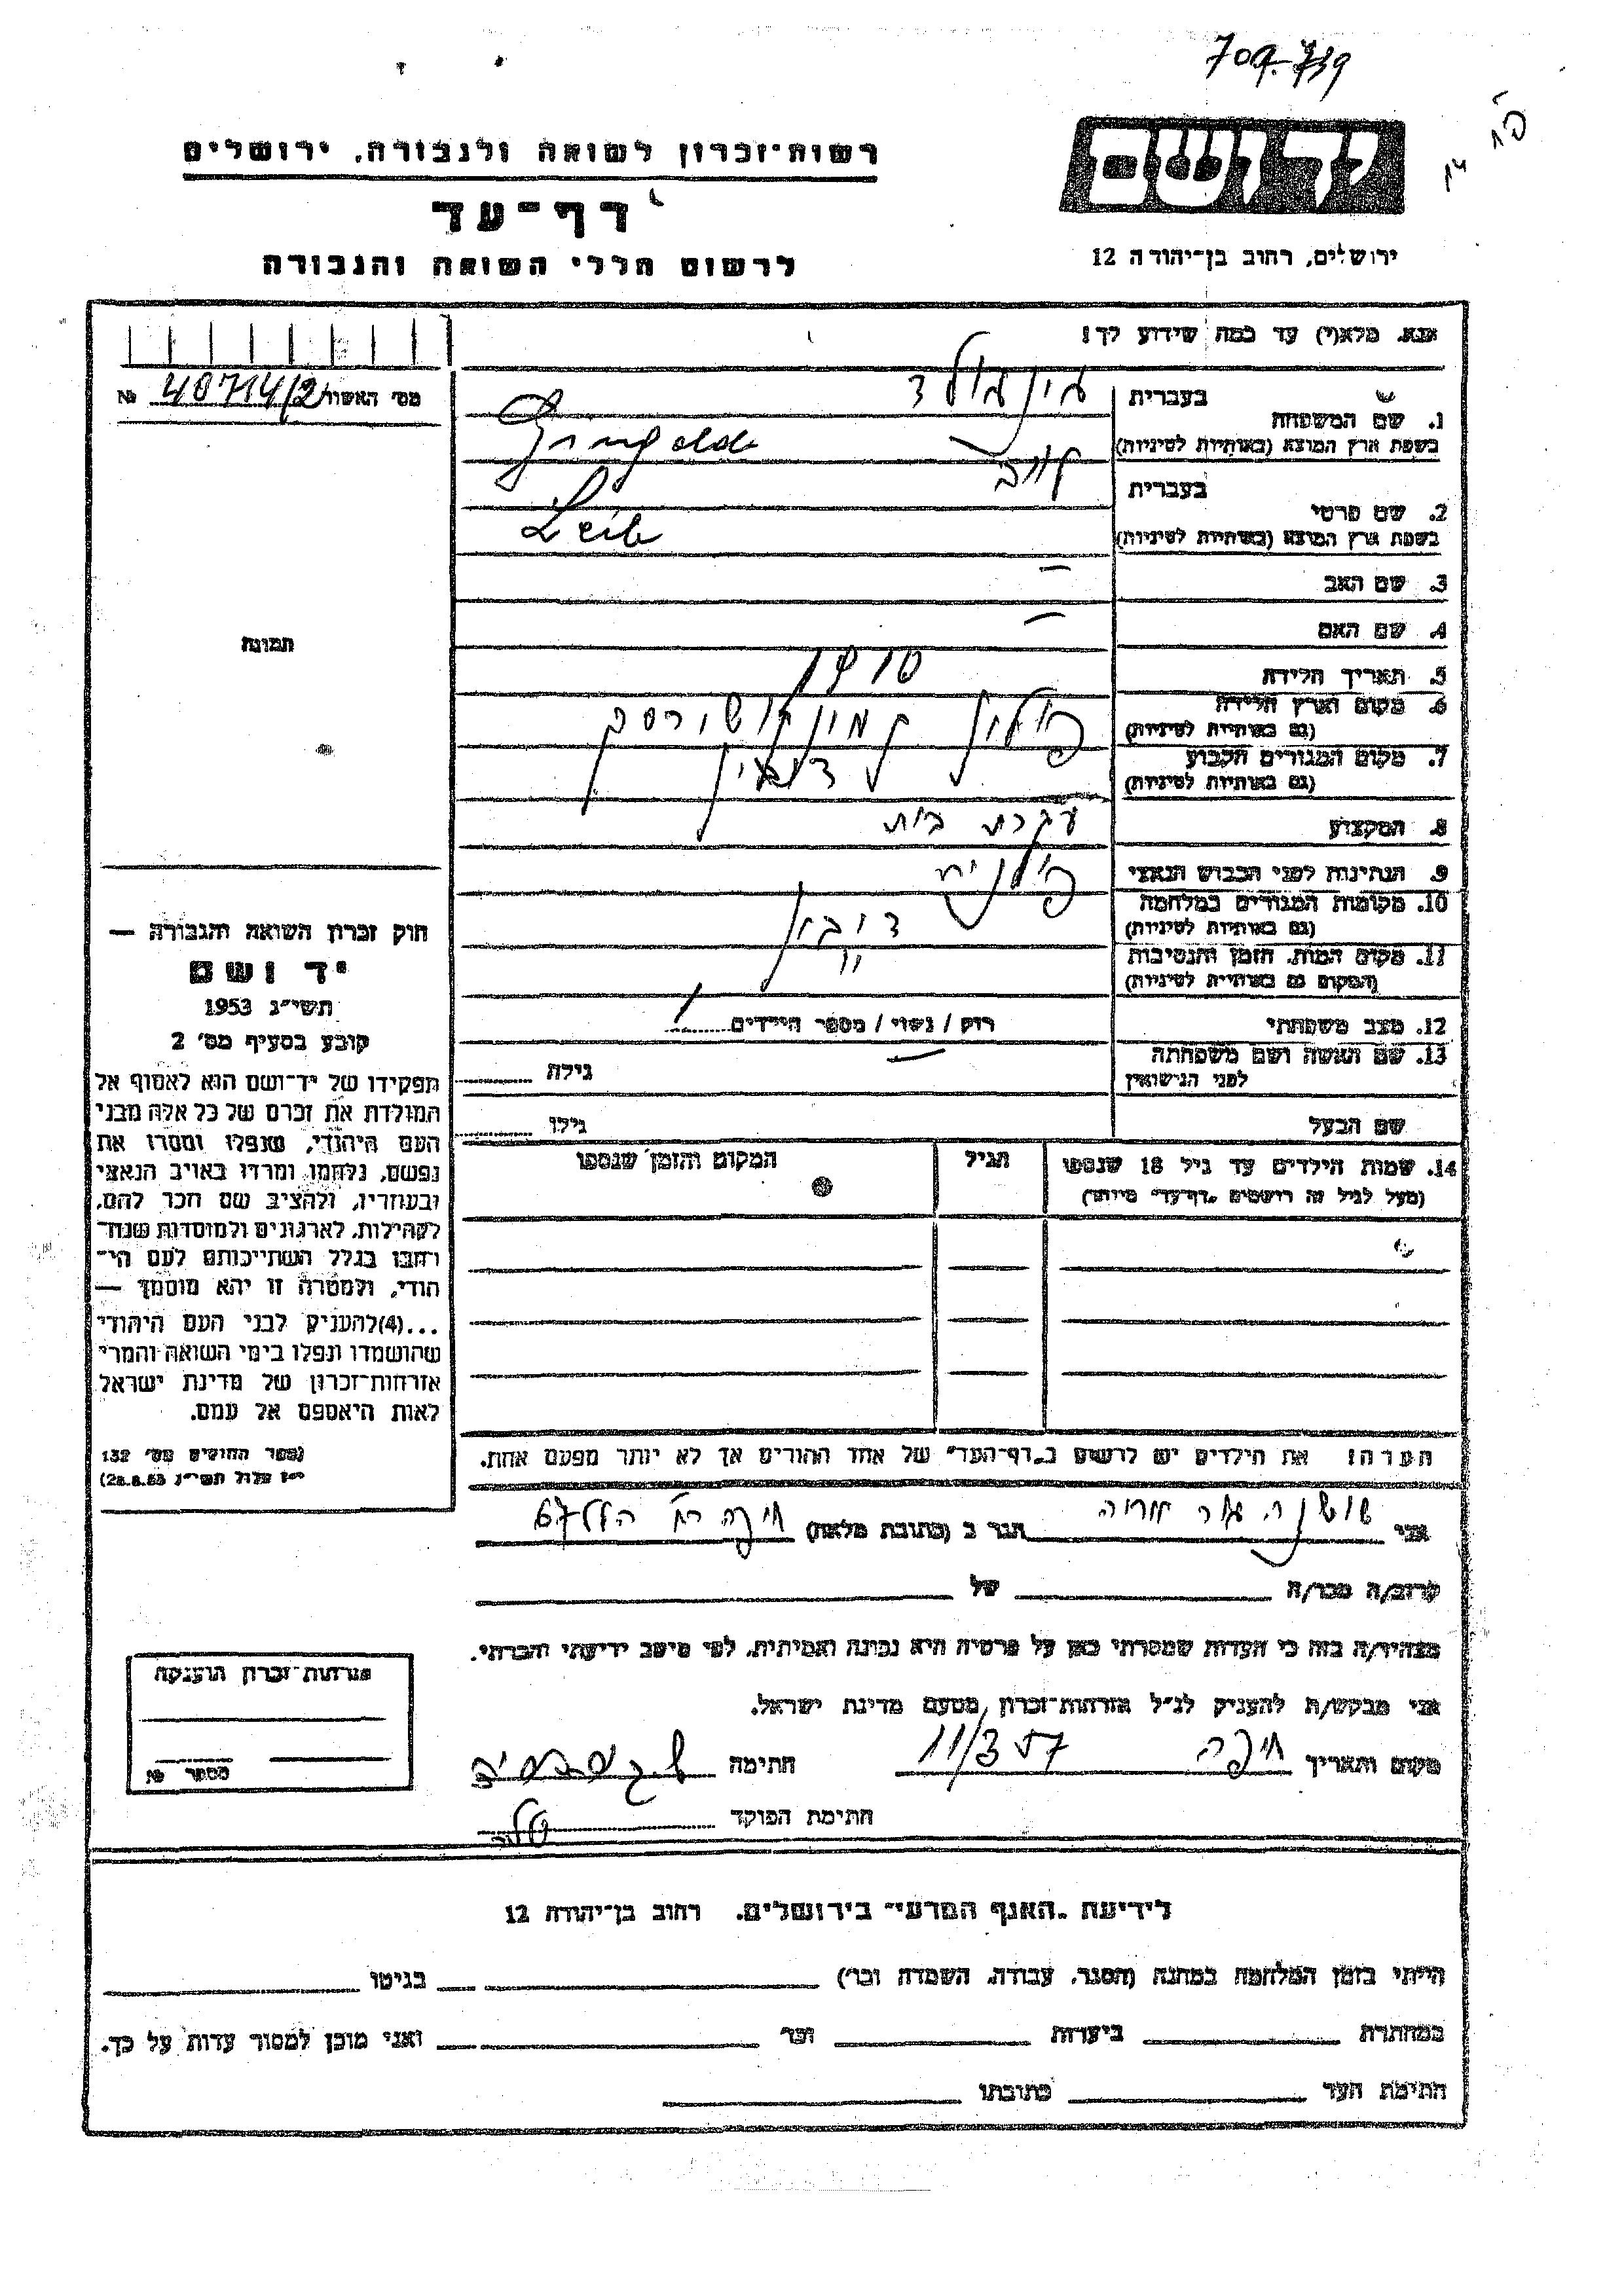 709.739
רשות-זכרון לשואה ולגבורה, ירושלים
יד ושם
דף-עד
לרשום חללי השואה והגבורה
ירושלים, רחוב בן-יהודה 12
אנא, מלא(י) עד כמה שידוע לך!
מס' האשור 40714/2 №
בעברית גינגולד
1. שם המשפחה
בשפת ארץ המוצא (באותיות לטיניות) Gringolde
בעברית לייב
2. שם פרטי
בשפת ארץ המוצא (באותיות לטיניות) Leib
3. שם האב —
4. שם האם —
תמונה
5. תאריך הלידה 1910
6. מקום וארץ הלידה פולין
(גם באותיות לטיניות)
7. מקום המגורים הקבוע
(גם באותיות לטיניות)
8. המקצוע עקרת בית
9. הנתינות לפני הכבוש הנאצי פולנית
10. מקומות המגורים במלחמה
(גם באותיות לטיניות)
11. מקום המות, הזמן והנסיבות "
(המקום גם באותיות לטיניות)
12. מצב משפחתי רוק / נשוי / מספר הילדים
13. שם האשה ושם משפחתה גילה
לפני הנישואין
שם הבעל גילו
14. שמות הילדים עד גיל 18 שנספו הגיל המקום והזמן שנספו
(מעל לגיל זה רושמים "דף-עד" מיוחד)
חוק זכרון השואה והגבורה —
יד ושם
תשי"ג 1953
קובע בסעיף מס' 2
תפקידו של יד-ושם הוא לאסוף אל
המולדת את זכרם של כל אלה מבני
העם היהודי, שנפלו ומסרו את
נפשם, נלחמו ומרדו באויב הנאצי
ובעוזריו, ולהציב שם וזכר להם,
לקהילות, לארגונים ולמוסדות שנח-
רבו בגלל השתייכותם לעם הי-
הודי, ולמטרה זו יהא מוסמך —
...(4)להעניק לבני העם היהודי
שהושמדו ונפלו בימי השואה והמרי
אזרחות-זכרון של מדינת ישראל
לאות היאספם אל עמם.
(ספר החוקים מס' 132
י"ז אלול תשי"ג 28.8.53)
הערה! את הילדים יש לרשום ב"דף-העד" של אחד ההורים אך לא יותר מפעם אחת.
אני שושנה הגר ב (כתובת מלאה) חיפה רח' הלל 67
קרוב/ה מכר/ה של
מצהיר/ה בזה כי העדות שמסרתי כאן על פרטיה היא נכונה ואמיתית, לפי מיטב ידיעתי והכרתי.
אני מבקש/ת להעניק לנ"ל אזרחות-זכרון מטעם מדינת ישראל.
מקום ותאריך חיפה 11/3 57 חתימה
חתימת הפוקד
אזרחות-זכרון הוענקה
מספר №
לידיעת "האגף המדעי" בירושלים, רחוב בן-יהודה 12
הייתי בזמן המלחמה במחנה (הסגר, עבודה, השמדה וכו') בגיטו
במחתרת ביערות ועד ואני מוכן למסור עדות על כך.
חתימת העד כתובתו